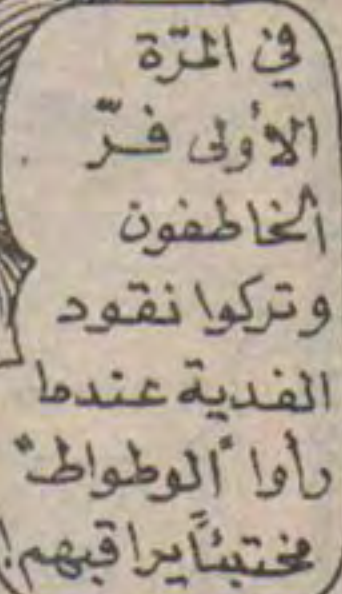 في المرّة
الأولى فرّ
الخاطفون
وتركوا نقود
الفدية عندما
رأوا "الوطواط"
مختبئاً يراقبهم!